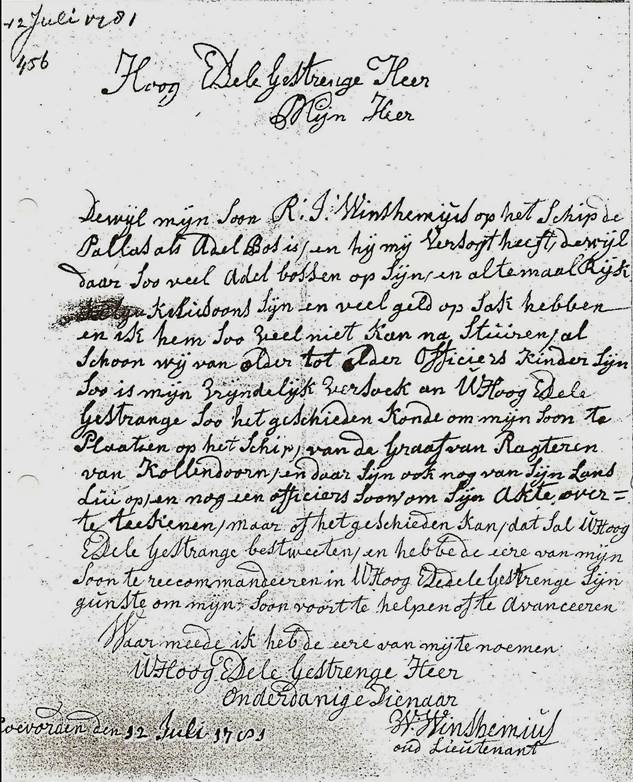 12 Juli 1781
456
Hoog Edele Gestrenge Heer
Mijn Heer
Dewijl mijn Soon R: J: Winshemijus op het Schip de
Pallas als Adel Bos is, en hij mij Versogt heeft, dewijl
daar Soo veel Adel bossen op Sijn, en altemaal Rijk
Sijn en veel geld op Sak hebben
en ik hem Soo veel niet Kan na Stüüren, al
Schoon wij van older tot older Officiers Kinder Sijn
Soo is mijn Vryndelijk Versoek an UHoog Edele
Gestrange Soo het geschieden Konde om mijn Soon te
Plaatsen op het Schip, van de Graaf van Ragteren
van Kollendoorn, en daar Sijn ook nog van Sijn Lans
Lüü op, en nog een officiers Soon, om Sijn Akte, over=
te teekenen, maar of het geschieden Kan, dat Sal UHoog
Edele Gestrange best weeten, en hebbe de eere van mijn
Soon te reecommandeeren in UHoog Ededele Gestrenge Sijn
gunste om mijn Soon voort te helpen of te Avanceeren
Waar meede ik heb de eere van mij te noemen
UHoog Edele Gestrenge Heer
Onderdanige Dienaar
Coevorden den 12 Juli 1781
W. Winshemius
oud Lieutenant